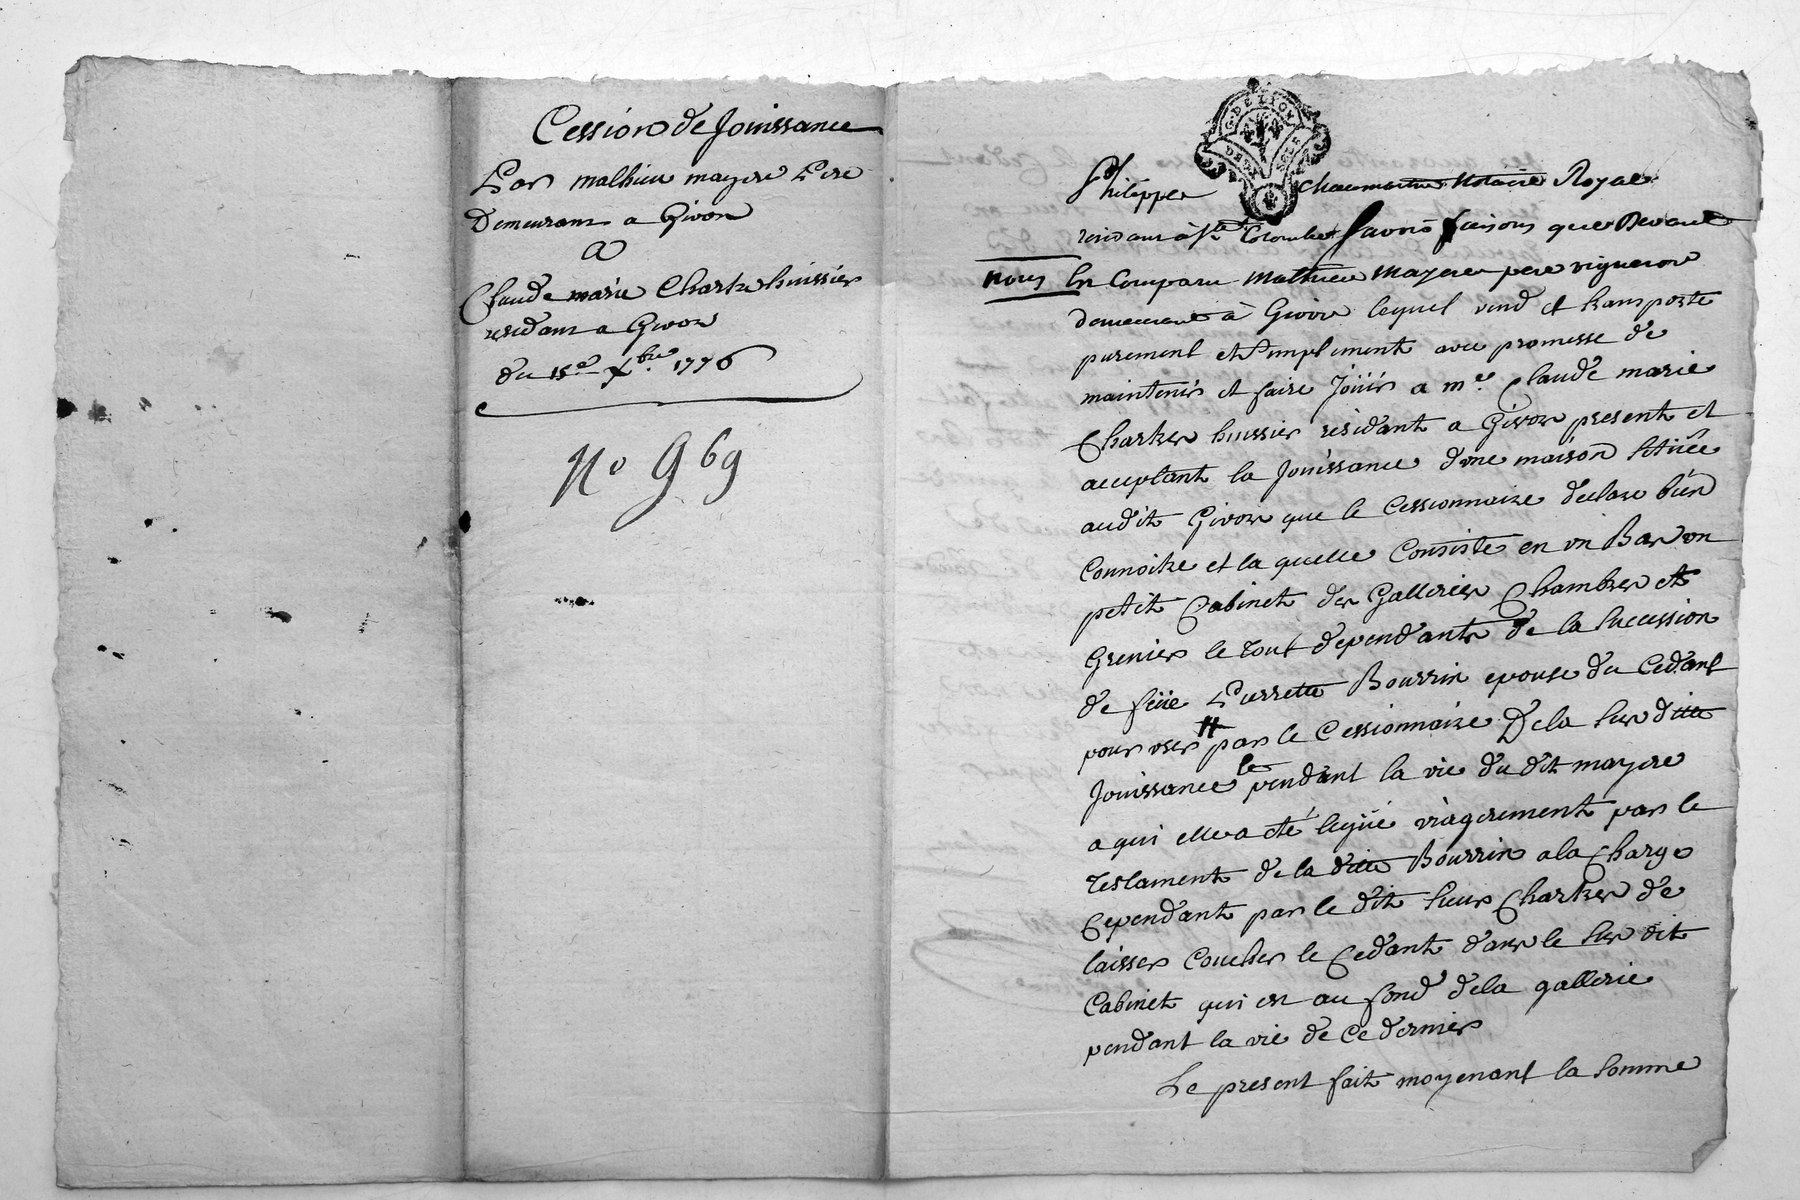 Cession de Jouissance
Par mathieu mayere Pere
Demeurant a Givor
a
Claude marie Chartre huissier
residant a Givor
du 15e Xbre. 1776
No 969
G. DE LYON
Philippe Chaumartin Notaire Royal
residant à Ste Colombe Savoir faisons que Devant
nous En Comparu Mathieu Mayere pere vigneron
demeurant à Givor lequel vend et transporte
purement et simplement avec promesse de
maintenir et faire Joüir a me. Claude marie
Chartre huissier résidant a Givor present et
acceptant la Jouissance d'une maison Sitüée
audit Givor que le Cessionnaire declare bien
Connoitre et la quelle Consiste en un Bas un
petit Cabinet des Galleries Chambre et
Grenier le tout dependants de la Succession
de feüe Pierrette Bourrin epouse du Cedant
pour user # par le Cessionnaire De la Sus ditte
Jouissance le pendant la vie du dit mayere
a qui elle a été legüé viagerement par le
testament de la ditte Bourrin a la Charge
Cependant par le dit Sieur Chartre de
laisser Coucher le Cedant dans le Sus dit
Cabinet qui est au fond de la gallerie
pendant la vie de Ce dernier
Le present fait moyenant la Somme